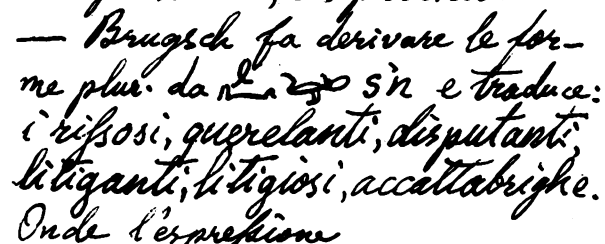 — Brugsch fa derivare le for-
me plur. da s'n e traduce:
i rissosi, querelanti, disputanti,
litiganti, litigiosi, accattabrighe.
Onde l'espressione